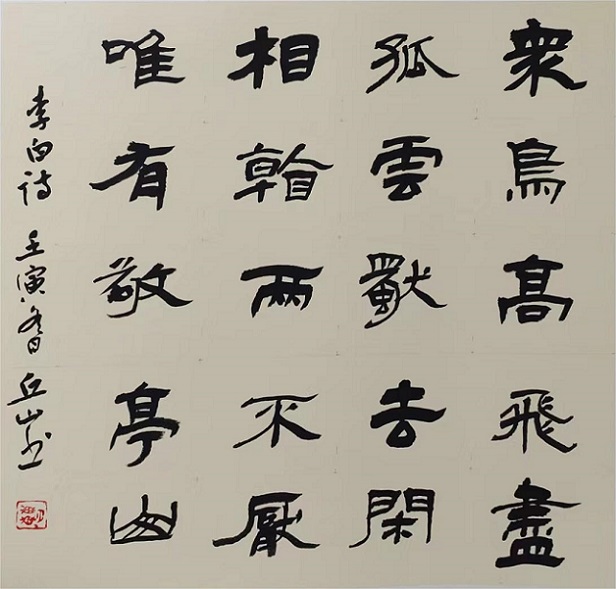 衆鳥髙飛盡
孤雲獨去閑
相看兩不厭
唯有敬亭山
李白詩 壬寅春 丘山书